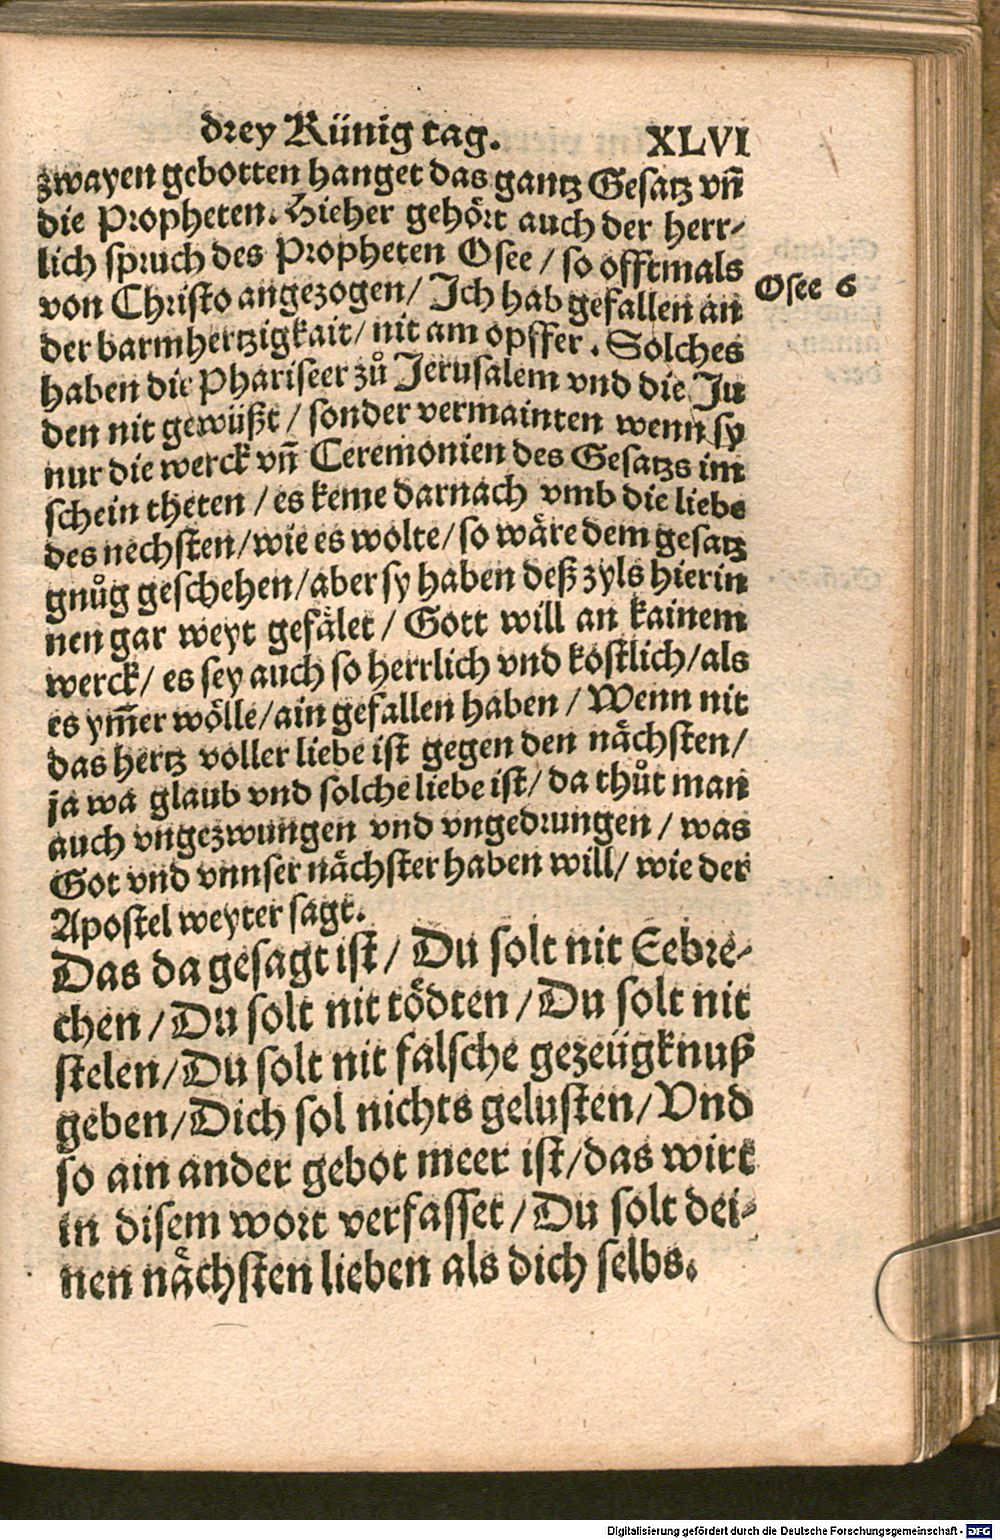 drey Künig tag. XLVI
zwayen gebotten hanget das gantz Gesatz vñ
die Propheten. Hieher gehört auch der herr-
lich spruch des Propheten Osee / so offtmals
von Christo angezogen / Ich hab gefallen an
Osee 6
der barmhertzigkait / nit am opffer. Solches
haben die Phariseer zů Jerusalem vnd die Ju
den nit gewüßt / sonder vermainten wenn sy
nur die werck vñ Ceremonien des Gesatzs im
schein theten / es keme darnach vmb die liebe
des nechsten / wie es wolte / so wåre dem gesatz
gnůg geschehen / aber sy haben deß zyls hierin
nen gar weyt gefålet / Gott will an kainem
werck / es sey auch so herrlich vnd kostlich / als
es ym̃er wölle / ain gefallen haben / Wenn nit
das hertz voller liebe ist gegen den nåchsten /
ja wa glaub vnd solche liebe ist / da thůt man
auch vngezwungen vnd vngedrungen / was
Got vnd vnnser nåchster haben will / wie der
Apostel weyter sagt.
Das da gesagt ist / Du solt nit Eebre-
chen / Du solt nit tödten / Du solt nit
stelen / Du solt nit falsche gezeügknuß
geben / Dich sol nichts gelusten / Vnd
so ain ander gebot meer ist / das wirt
in disem wort verfasset / Du solt dei-
nen nåchsten lieben als dich selbs.
Digitalisierung gefördert durch die Deutsche Forschungsgemeinschaft - DFG